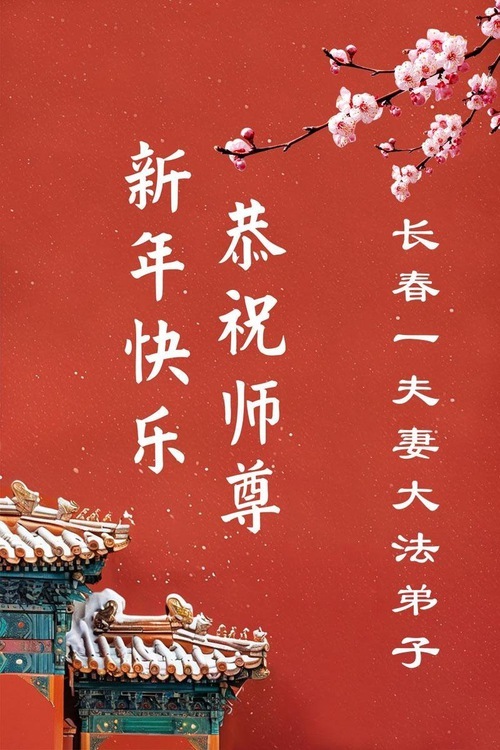 恭祝师尊
新年快乐
长春一夫妻大法弟子